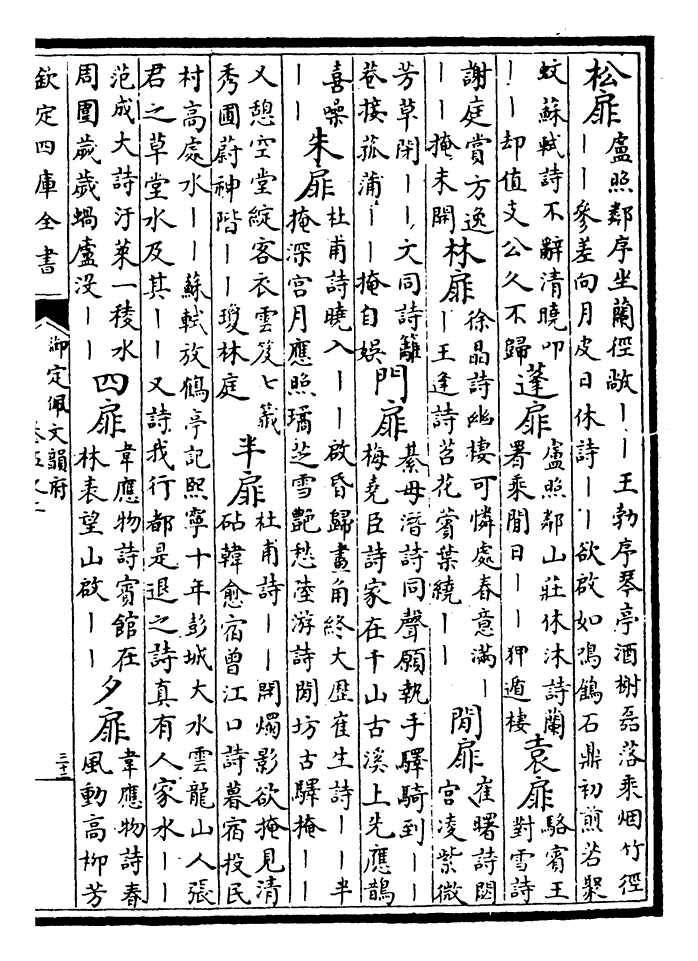 松扉
盧照鄰序坐蘭徑敞丨丨王勃序琴亭酒榭磊落乘烟竹徑
丨丨參差向月皮日休詩丨丨欲啟如鳴鶴石鼎初煎若聚
蚊蘇軾詩不辭清曉叩
丨丨却值支公久不歸
蓬扉
盧照鄰山莊休沐詩蘭
署乘閒日丨丨狎遁棲
袁扉
駱賓王
對雪詩
謝庭賞方逸
丨丨掩未開
林扉
徐晶詩幽棲可憐處春意滿丨
丨王逢詩苔花蒼葉繞丨丨
閒扉
崔曙詩閟
宮凌紫微
芳草閉丨丨文同詩籬
巷接菰蒲丨丨掩自娛
門扉
綦毋潛詩同聲願執手驛騎到丨丨
梅堯臣詩家在千山古溪上先應鵲
喜噪
丨丨
朱扉
杜甫詩曉入丨丨啟昏歸畫角終大歷崔生詩丨丨半
掩深宮月應照璚芝雪艷愁陸游詩閒坊古驛掩丨丨
又憩空堂綻客衣雲笈七籤
秀圃蔚神階丨丨瓊林庭
半扉
杜甫詩丨丨開燭影欲掩見清
砧韓愈宿曾江口詩暮宿投民
村高處水丨丨蘇軾放鶴亭記熙寧十年彭城大水雲龍山人張
君之草堂水及其丨丨又詩我行都是退之詩真有人家水丨丨
范成大詩汙萊一稜水
周圍歲歲蝸廬沒丨丨
四扉
韋應物詩賓館在
林表望山啟丨丨
夕扉
韋應物詩春
風動高柳芳
欽定四庫全書
御定佩文韻府
三十三